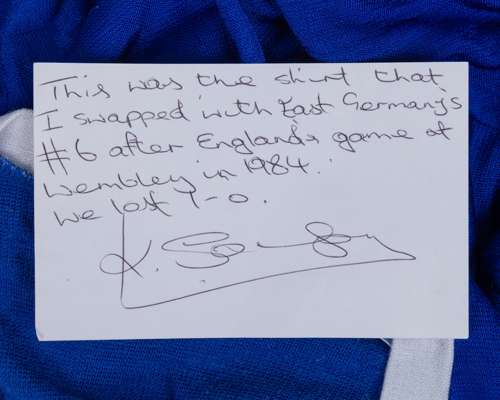 This was the shirt that
I swapped with East Germany's
#6 after England's game at
Wembley in 1984.
We lost 1-0.
K. Sansom